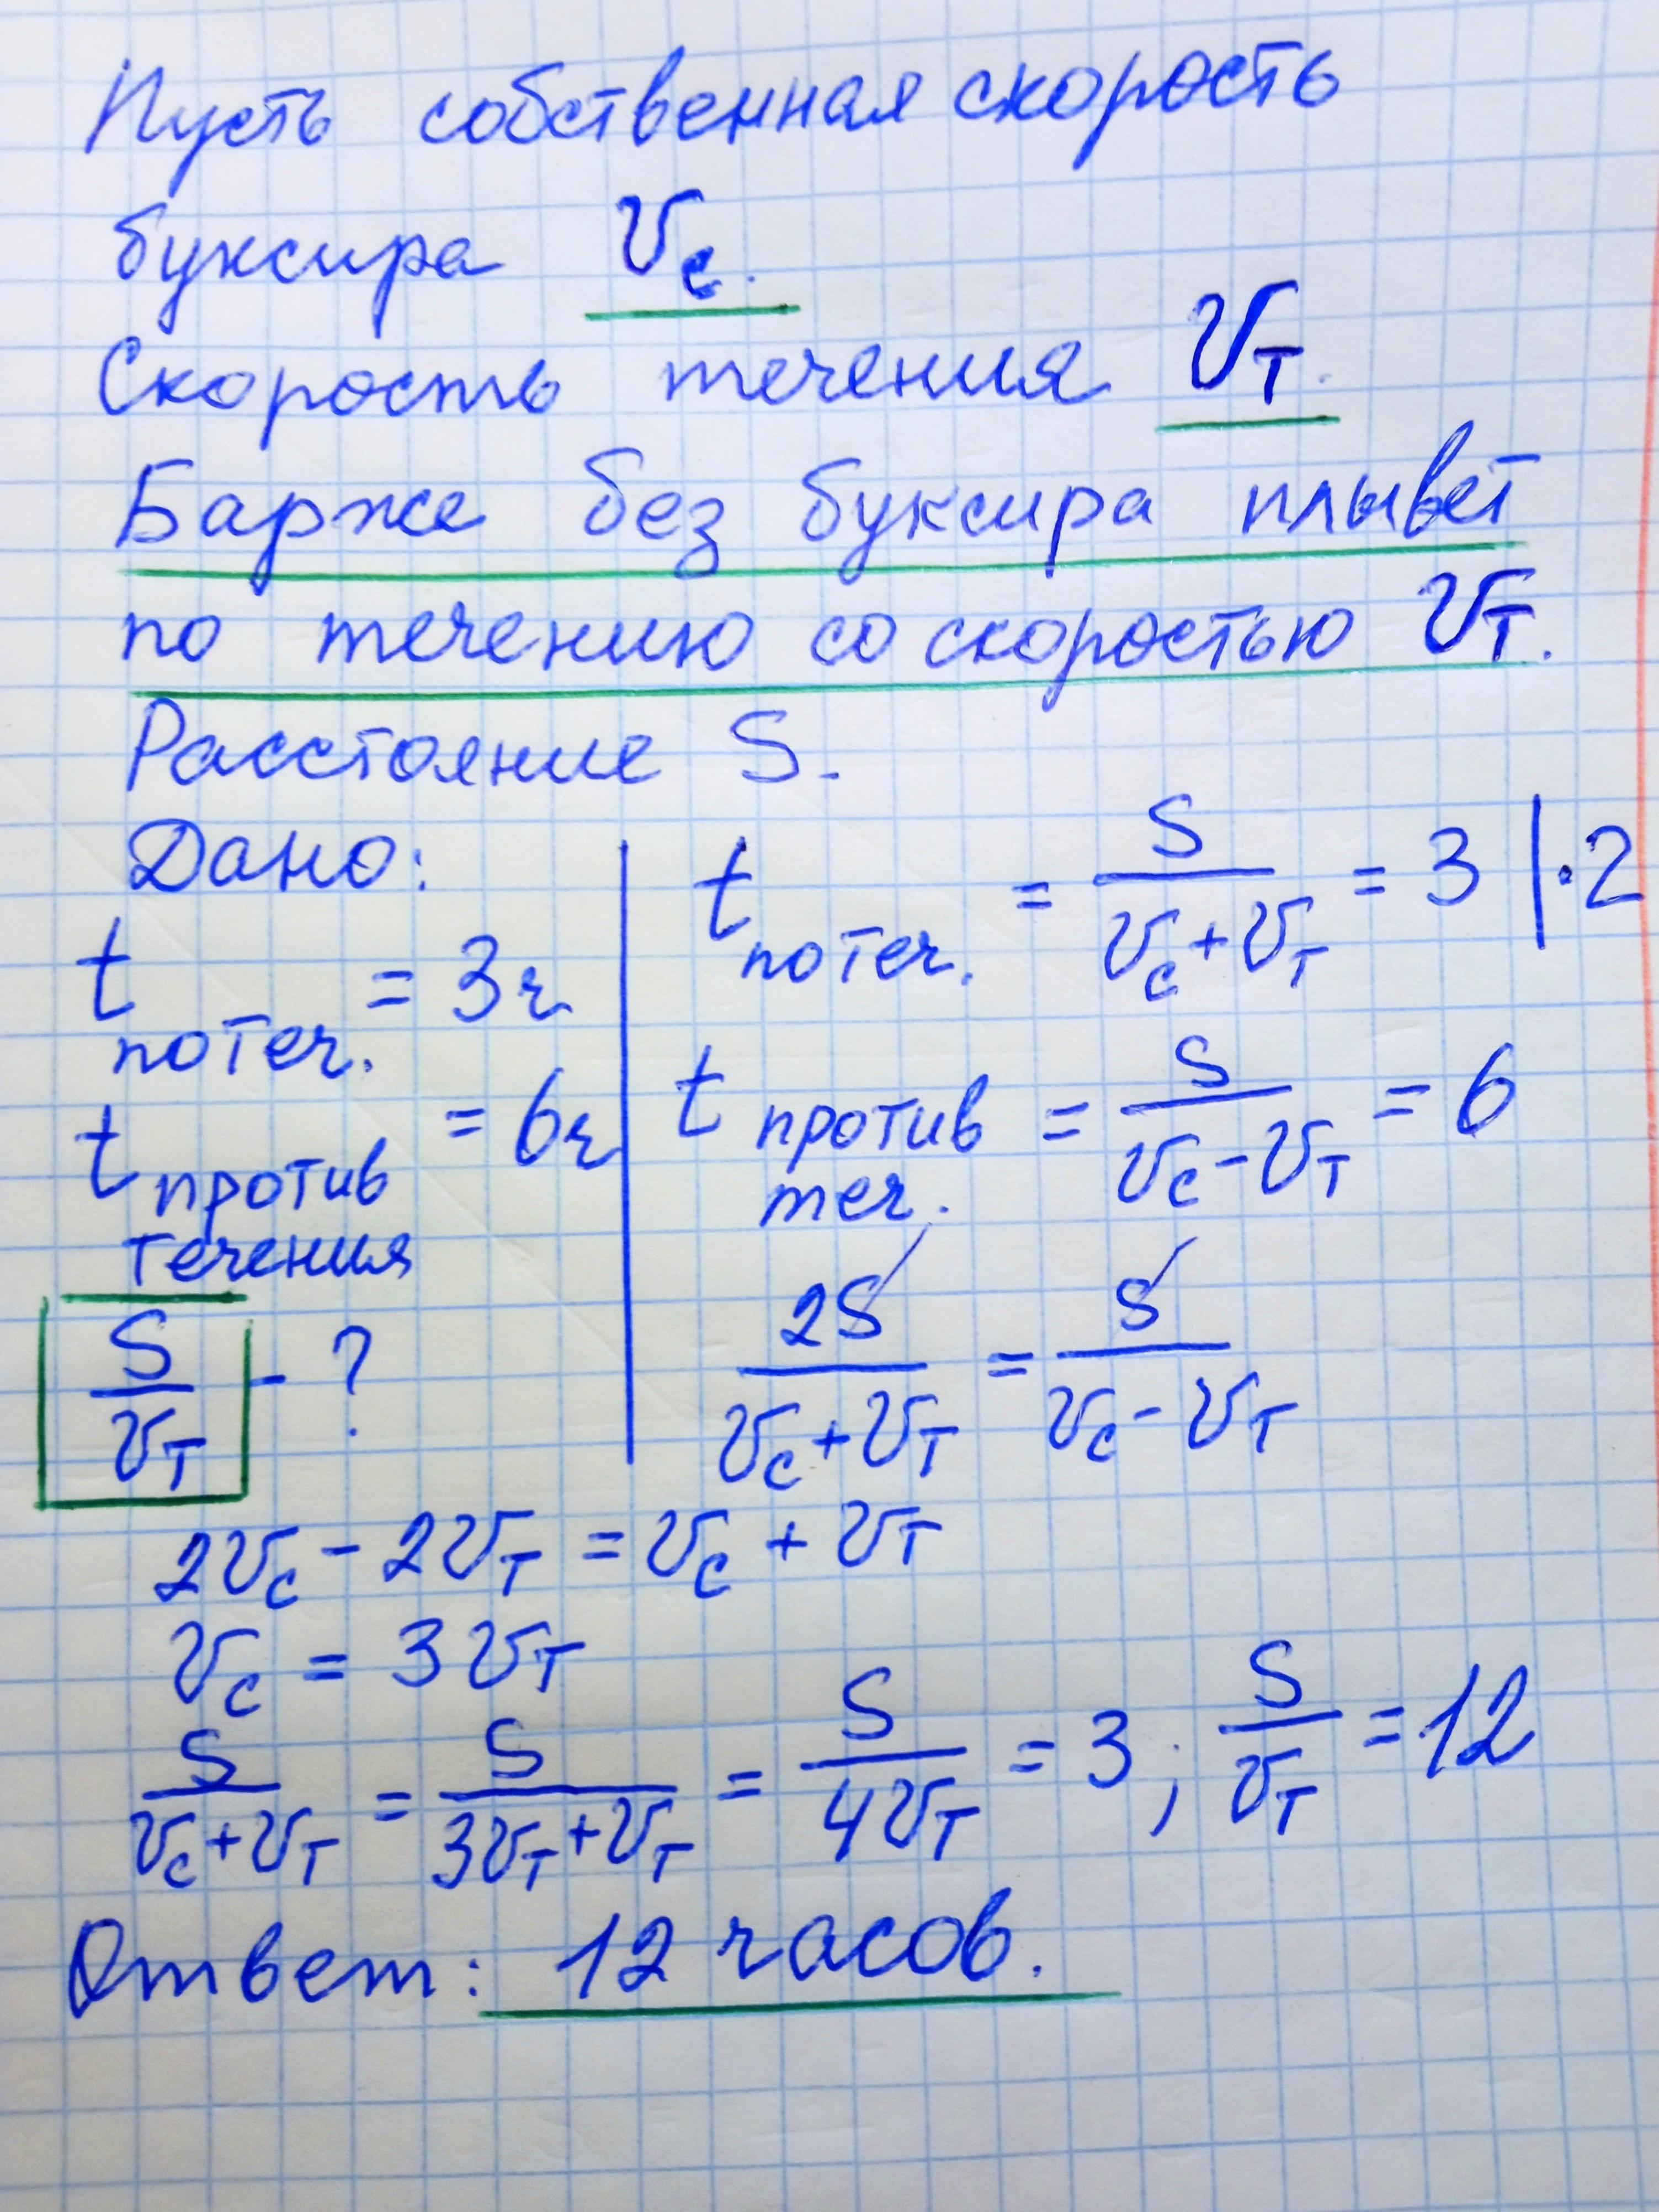 Пусть собственная скорость
буксира Vс.
Скорость течения Vт.
Барже без буксира плывёт
по течению со скоростью Vт.
Расстояние S.
Дано:
t по теч. = 3ч
t против течения = 6ч
S/Vт - ?
t по теч. = S/(Vс + Vт) = 3 | · 2
t против теч. = S/(Vс - Vт) = 6
2S/(Vс + Vт) = S/(Vс - Vт)
2Vс - 2Vт = Vс + Vт
Vс = 3Vт
S/(Vс + Vт) = S/(3Vт + Vт) = S/4Vт = 3; S/Vт = 12
Ответ: 12 часов.